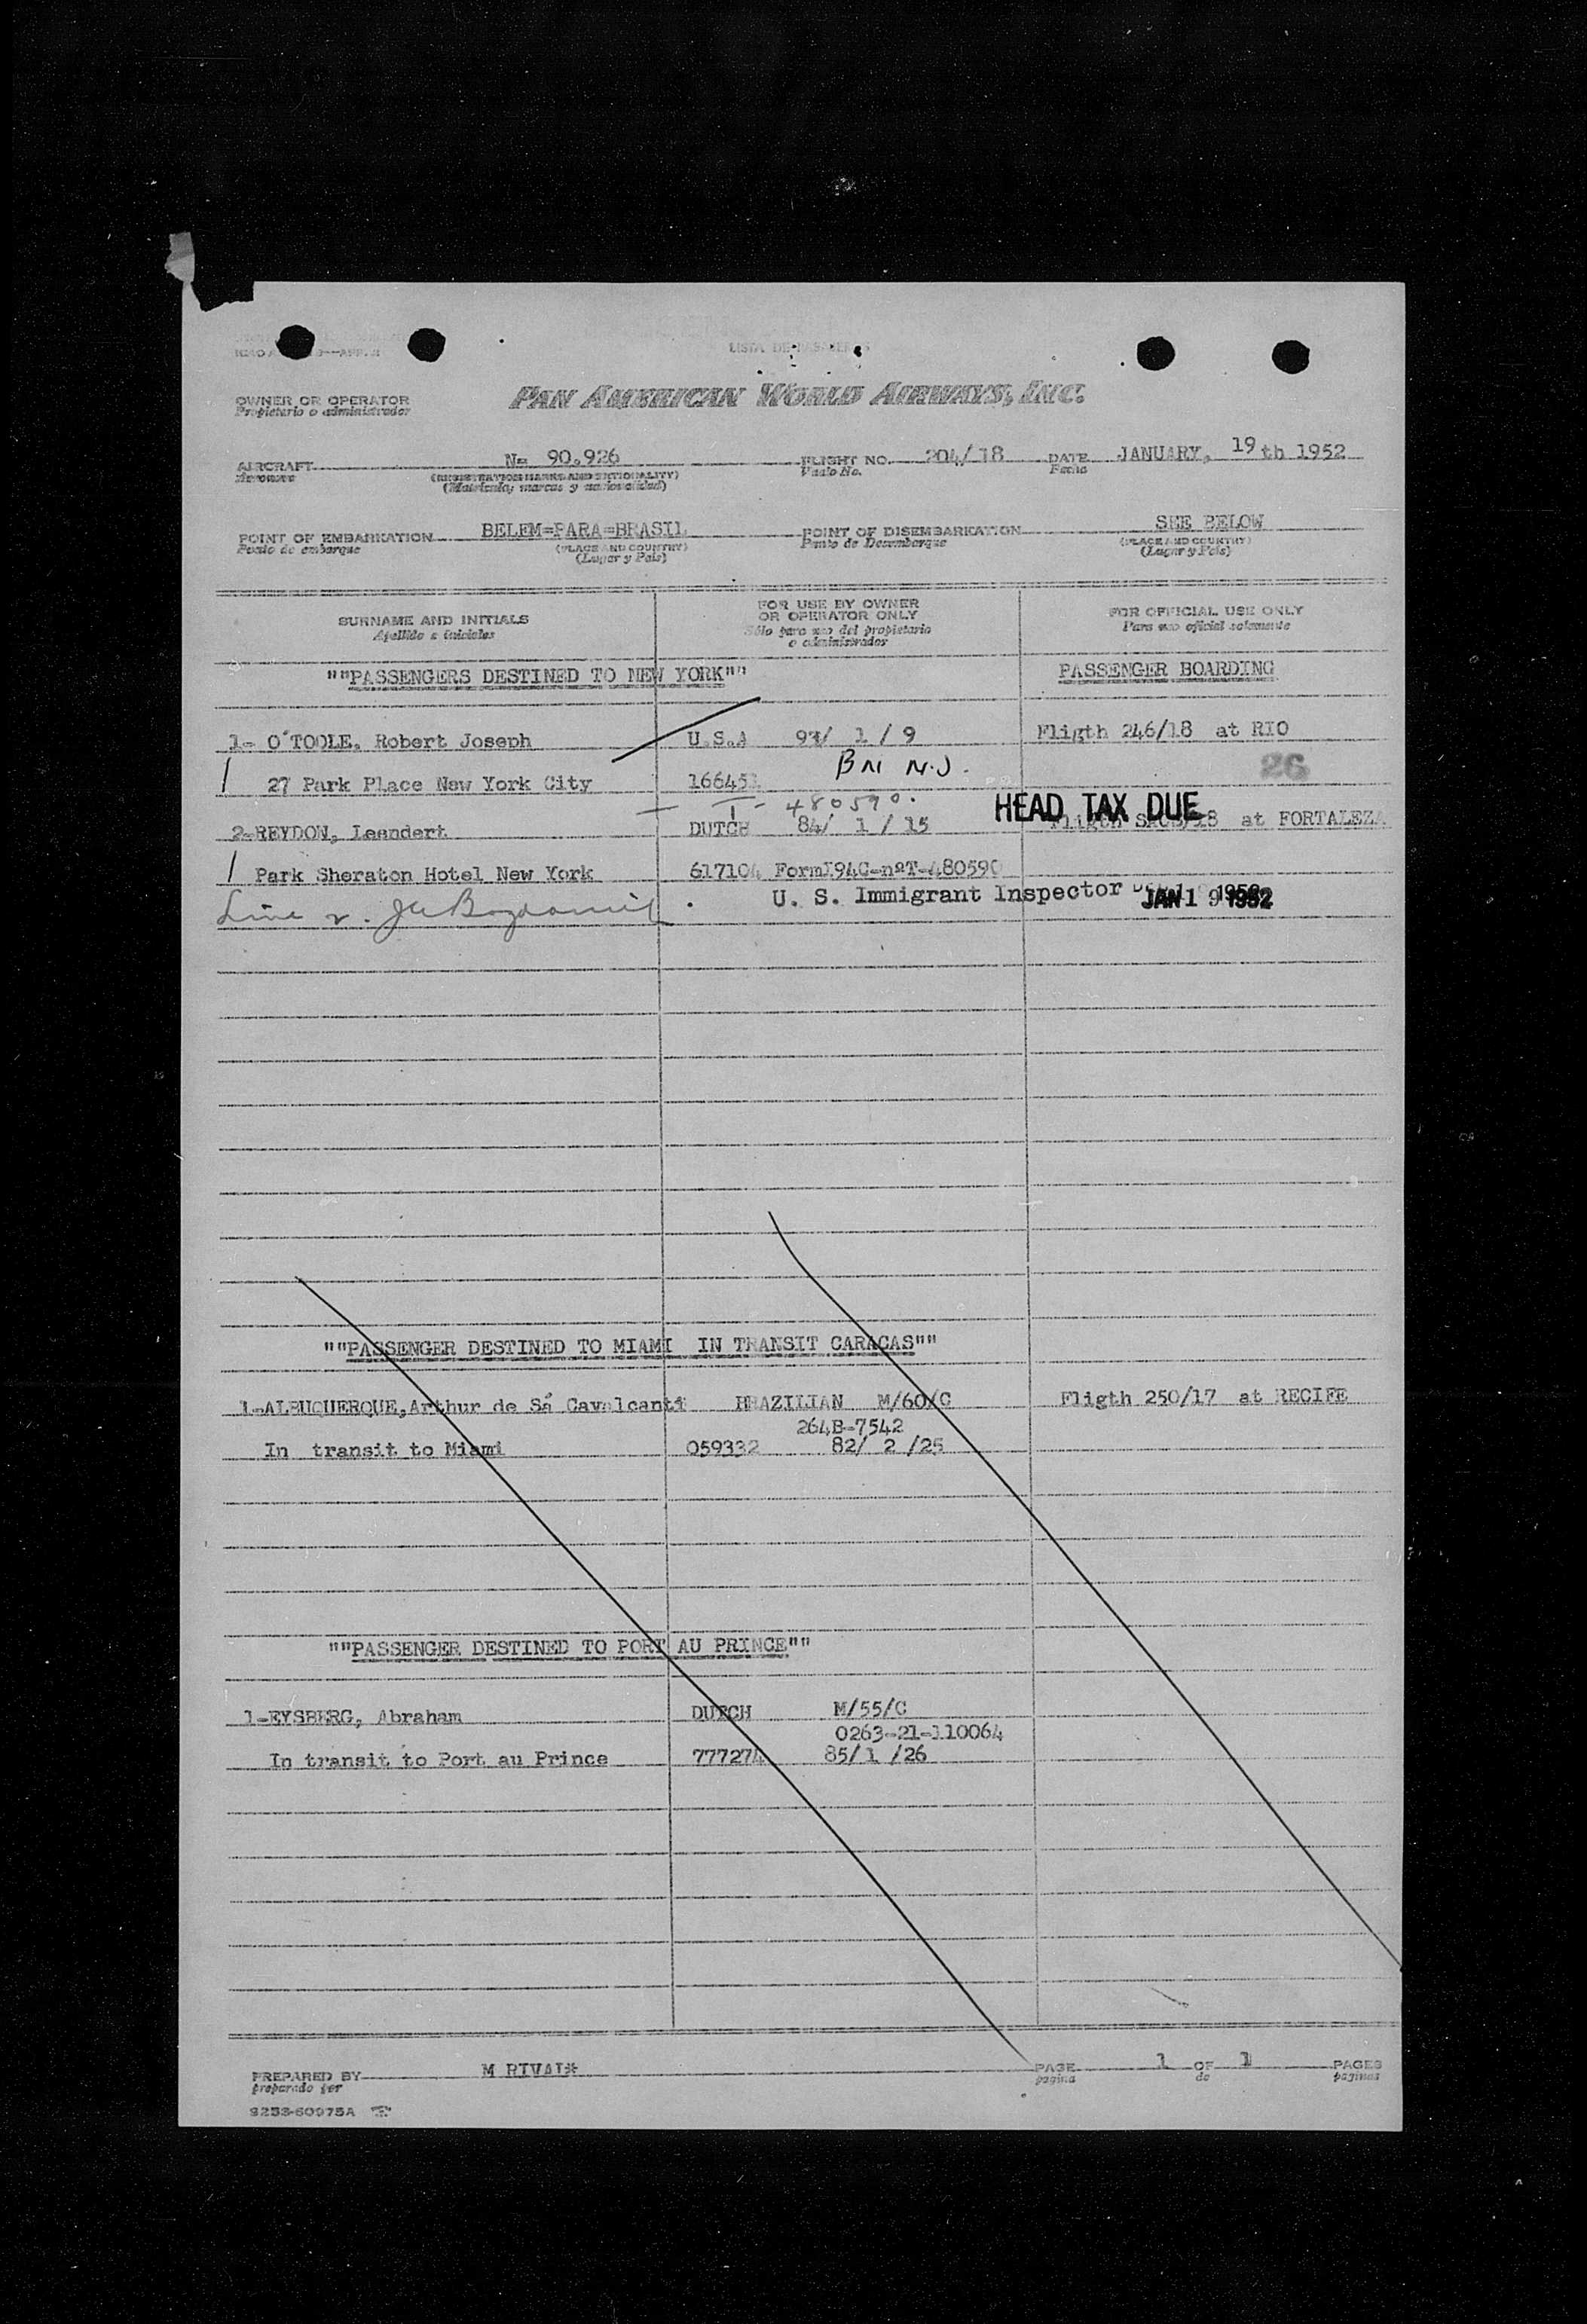 LISTA DE PASAJEROS
OWNER OR OPERATOR
Propietario o administrador
PAN AMERICAN WORLD AIRWAYS, INC.
AIRCRAFT N= 90.926 FLIGHT NO. 204/18 DATE JANUARY, 19th 1952
Aeronave (REGISTRATION MARKS AND NATIONALITY) Vuelo No. Fecha
(Matricula, marcas y nacionalidad)
POINT OF EMBARKATION BELEM=PARA=BRASIL POINT OF DISEMBARKATION SEE BELOW
Punto de embarque (PLACE AND COUNTRY) Punto de Desembarque (PLACE AND COUNTRY)
(Lugar y Pais) (Lugar y Pais)
SURNAME AND INITIALS FOR USE BY OWNER OR OPERATOR ONLY FOR OFFICIAL USE ONLY
Apellido e iniciales Sólo para uso del propietario o administrador Para uso oficial solamente
""PASSENGERS DESTINED TO NEW YORK"" PASSENGER BOARDING
1- O'TOOLE, Robert Joseph U.S.A 93/ 1 / 9 Fligth 246/18 at RIO
BM N.J.
27 Park Place New York City 16645 26
T- 480590.
HEAD TAX DUE
2-REYDON, Leendert DUTCH 84/ 1 / 15 Fligth at FORTALEZA
Park Sheraton Hotel New York 61710 FormI94C-nºT-480590
U. S. Immigrant Inspector JAN 19 1952
""PASSENGER DESTINED TO MIAMI IN TRANSIT CARACAS""
1-ALBUQUERQUE,Arthur de Sá Cavalcanti BRAZILIAN M/60/C Fligth 250/17 at RECIFE
264B-7542
In transit to Miami 059332 82/ 2 /25
""PASSENGER DESTINED TO PORT AU PRINCE""
1-EYSBERG, Abraham DUTCH M/55/C
0263-21-110064
In transit to Port au Prince 777274 85/1 /26
PREPARED BY M RIVAL* PAGE 1 OF 1 PAGES
preparado por pagina de paginas
9253-60975A